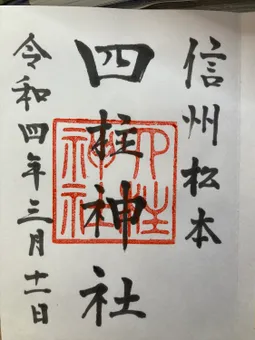 信州松本
四柱神社
四柱神社
令和四年三月十一日